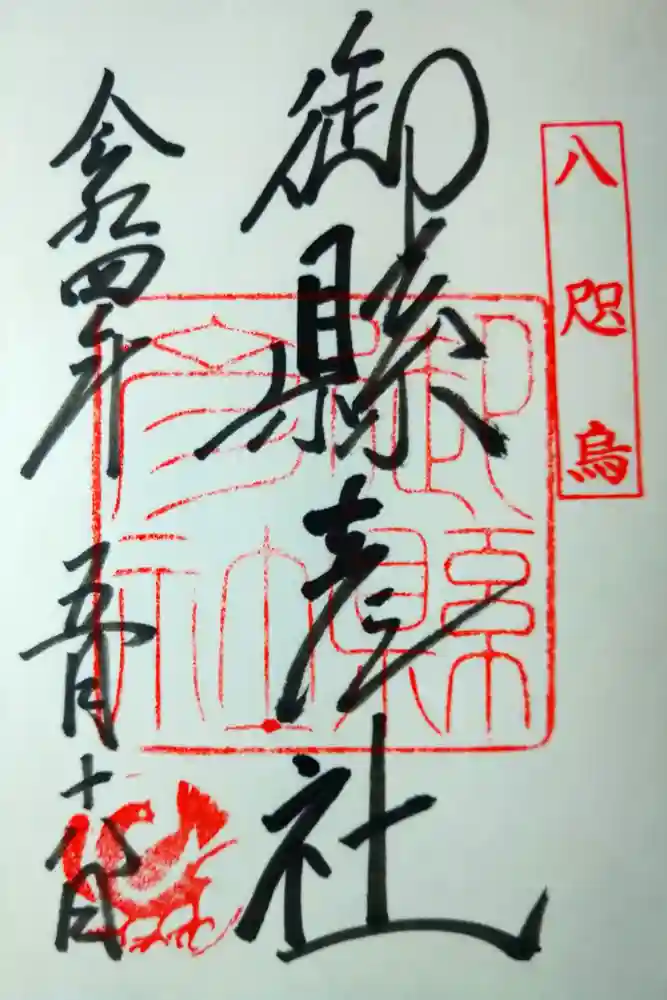 八咫烏
御縣彦社
令和四年 五月十八日
御縣彦社